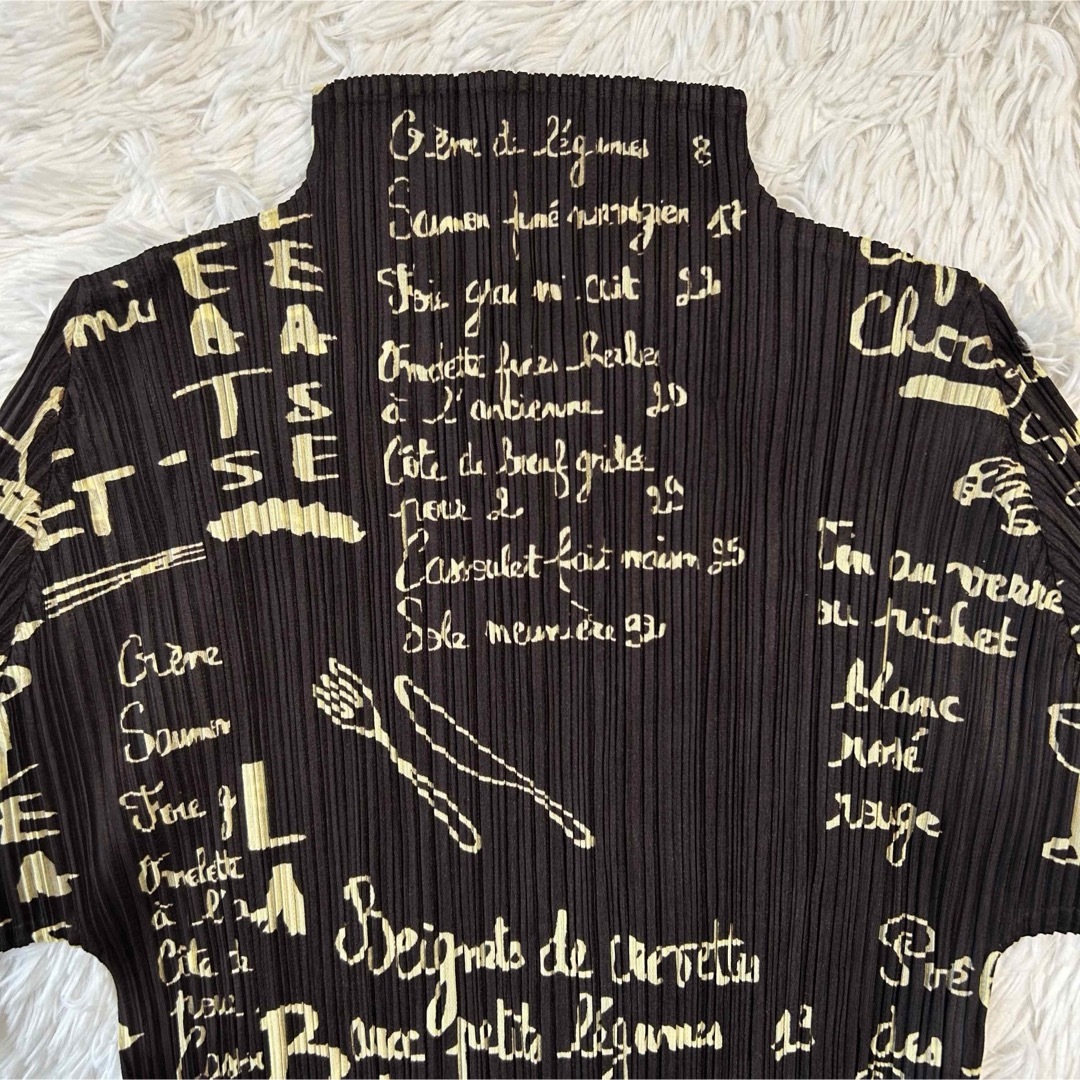 Crème de légumes 8
Saumon fumé norvégien 17
Foie gras mi cuit 22
Omelette fines herbes
à l'ancienne 20
Côte de bœuf grillée
pour 2 29
Cassoulet fait maison 25
Sole meunière 92
mi
LEATSE
EATS
ET
Choc
Vin au verre
ou pichet
blanc
rosé
rouge
Crème
Saumon
Foie g
Omelette
à l'a
Côte de
pour
Casso
LA
Beignets de crevettes
petits légumes 13
des